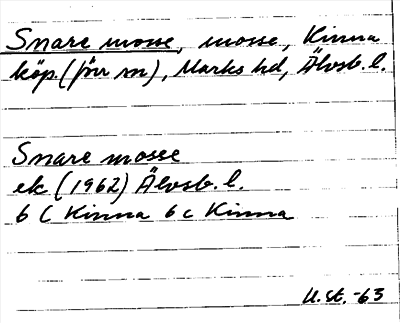 Snare mosse, mosse, Kinna
köp. (förr sn), Marks hd, Älvsb. l.
Snare mosse
ek (1962) Älvsb. l.
6 C Kinna 6 c Kinna
U.st. -63